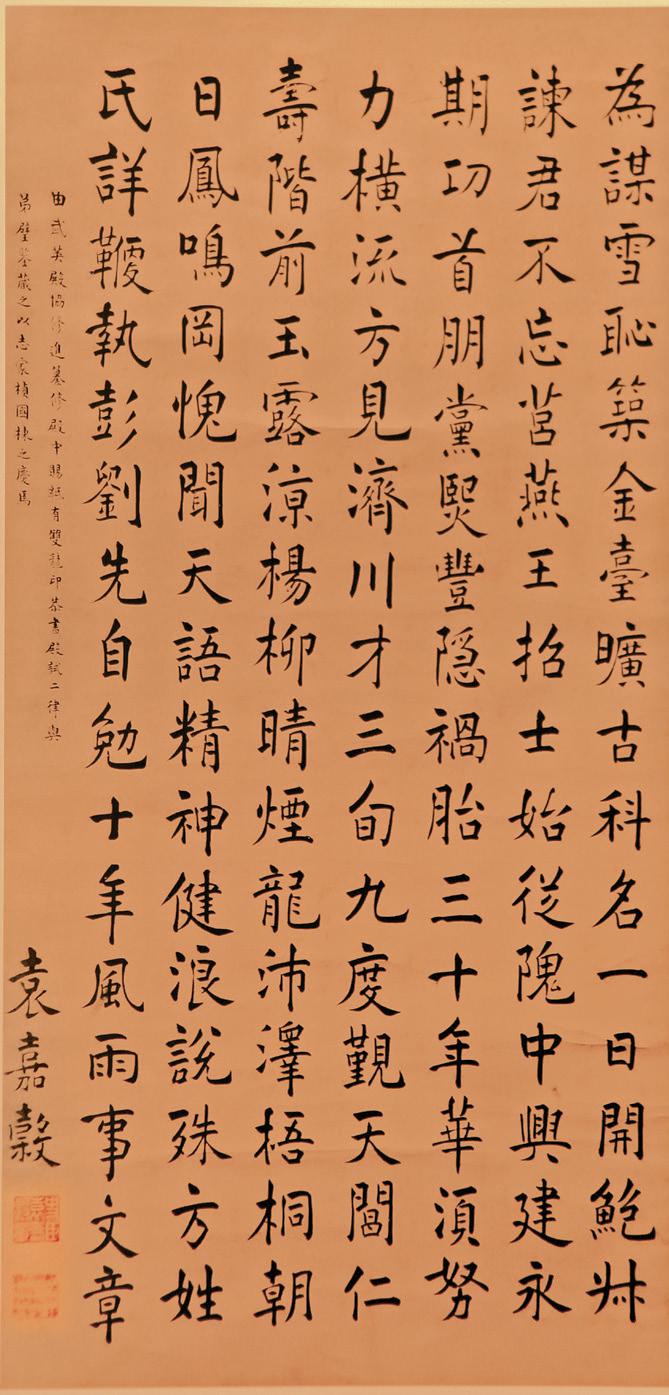 為謀雪恥築金臺曠古科名一日開鮑叔
諫君不忘莒燕王招士始從隗中興建永
期功首朋黨熙豐隱禍胎三十年華須努
力橫流方見濟川才三旬九度覲天閶仁
壽階前玉露涼楊柳晴煙龍沛澤梧桐朝
日鳳鳴岡愧聞天語精神健浪說殊方姓
氏詳鞭執彭劉先自勉十年風雨事文章
由武英殿協修進纂修殿中賜紙有雙龍印恭書殿試二律與
弟璧鏊藏之以志家楨國棟之慶焉
袁嘉穀